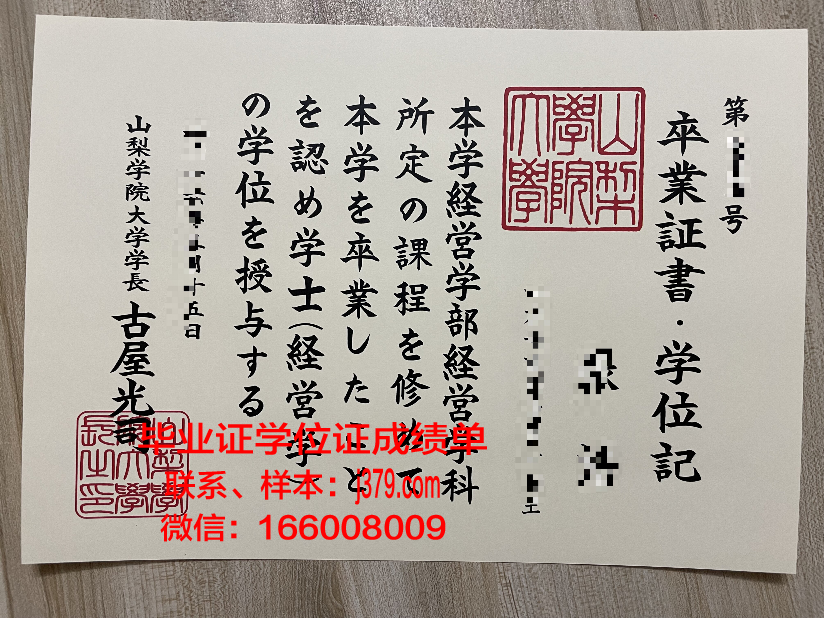 第
号
卒業証書・学位記
山梨
學院
大學
本学経営学部経営学科
所定の課程を修めて
本学を卒業したこと
を認め学士(経営学)
の学位を授与する
月十五日
山梨学院大学学長 古屋光司
毕业证学位证成绩单
联系、样本：j379.com
微信：166008009